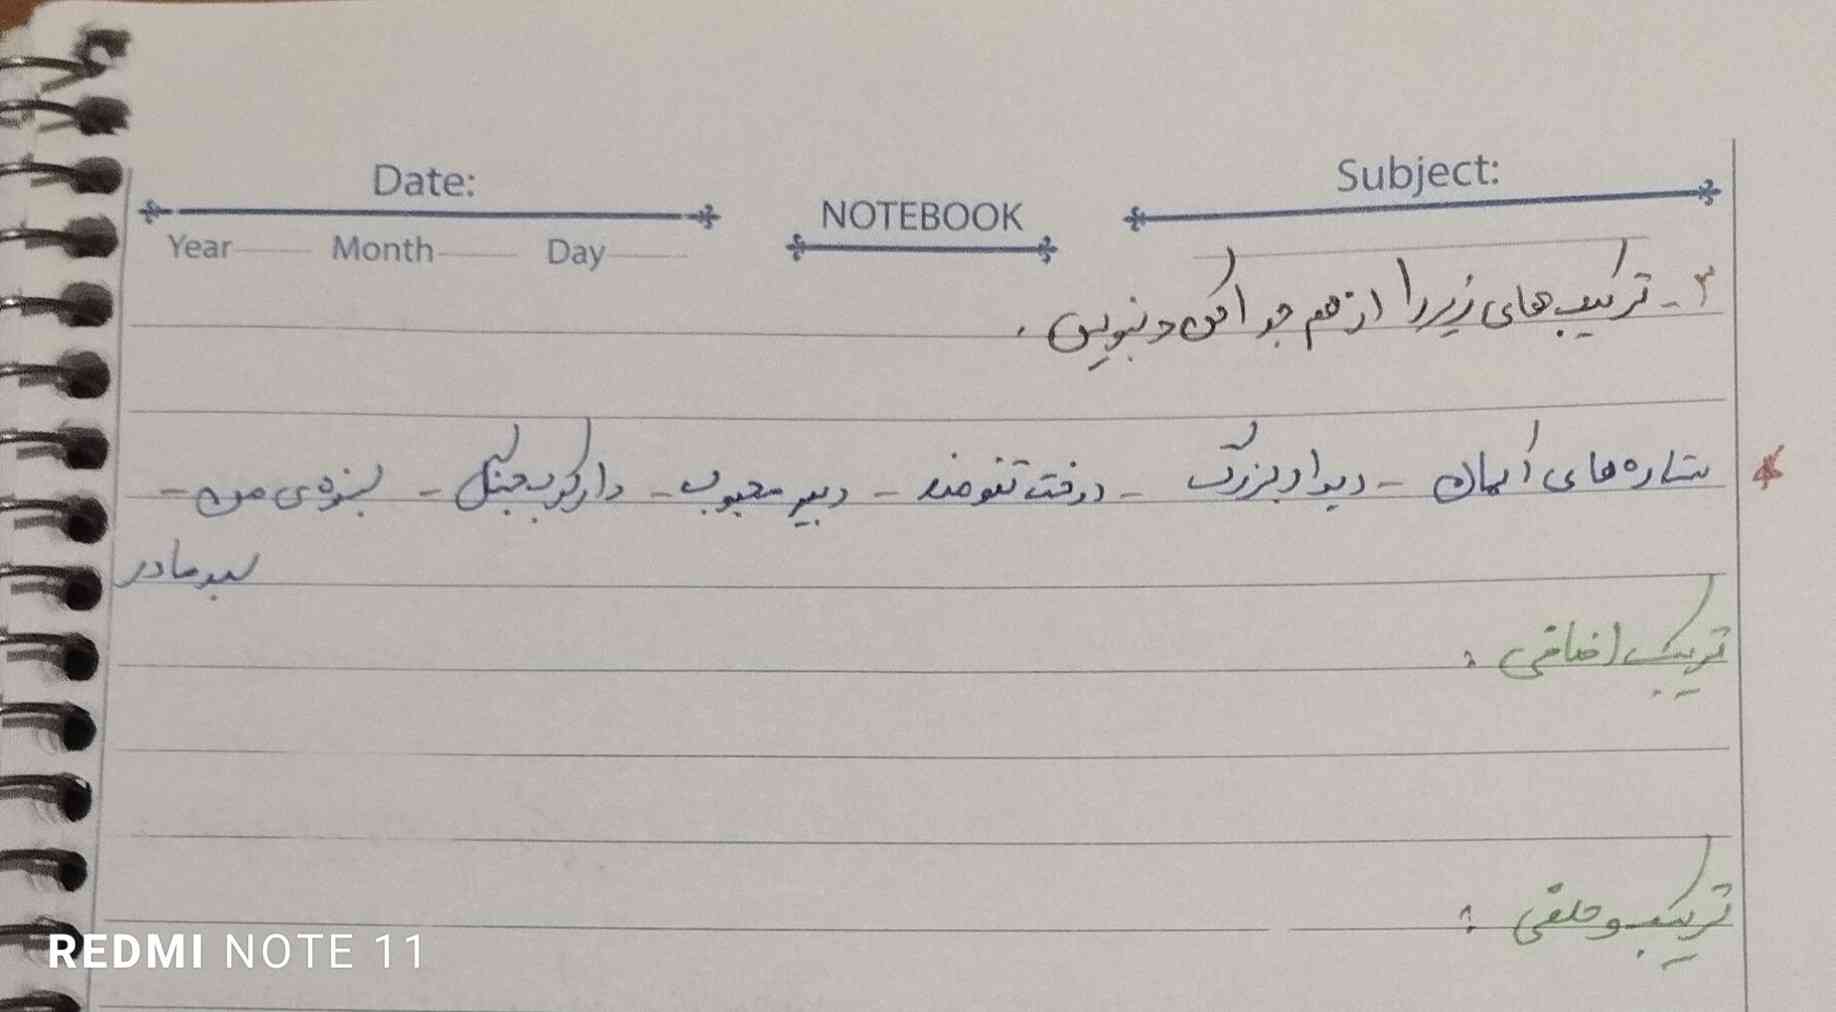 Date:
Subject:
NOTEBOOK
Year Month Day
۲- ترکیب های زیر را از هم جدا کن و بنویس .
ستاره های آسمان - دیوار بزرگ - درخت تنومند - دبیر محبوب - دارکوب جنگل - سبزه ی من -
سبد مادر
ترکیب اضافی :
ترکیب وصفی :
REDMI NOTE 11